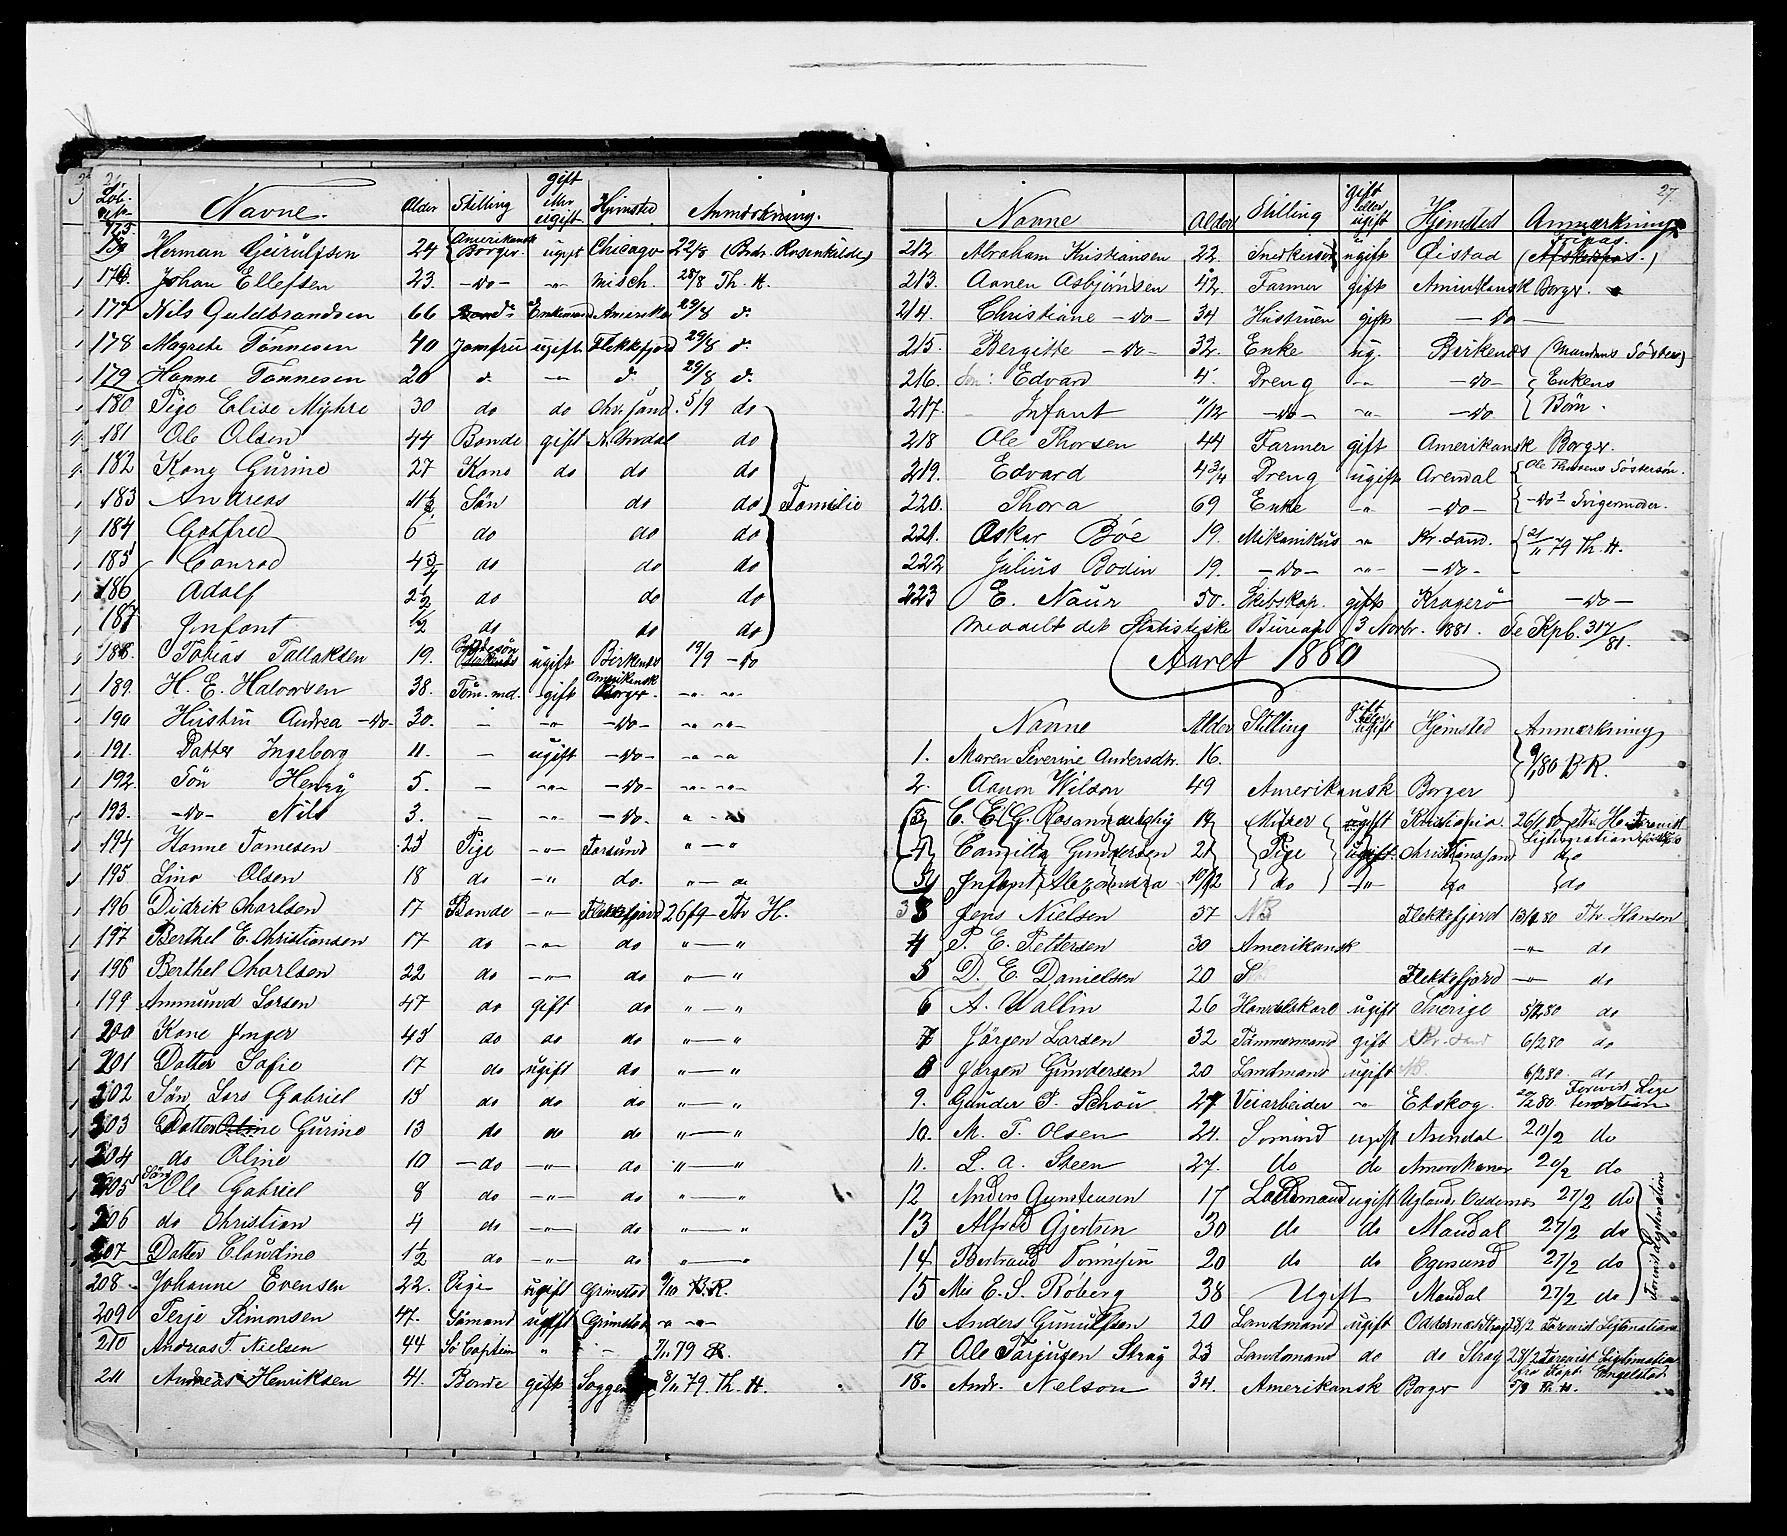 26
Löb. Navne. Alder Stilling gift eller ugift Hjemsted Anmærkning.
175 Herman Geirulfsen 24 Amerikansk Borger ugift Chicago 22/8 (Brdr. Rosenkilde)
176 Johan Ellefsen 23. -do- -"- Misch. 28/8 Th. H.
177 Nils Guldbrandsen 66 Enkemand Amerika 29/8 d.
178 Magrete Tönnesen 40 Jomfru ugift Flekkefjord 29/8 d.
179 Hanne Tönnesen 20 d. -"- d. 29/8 d.
180 Pige Elise Myhre 30 do do Chr. sand. 5/9 do
181 Ole Olsen 44 Bonde gift do
182 Kone Gurine 27 Kone do do do
183 Andreas 11½ Sön do do Familie
184 Gotfred 6 do do do
185 Conrad 4¾ do do do
186 Adolf 2½ do do do
187 Infant ½ do do do
188. Tobias Tallaksen 19. ugift Birkenes 19/9 -do
189. H. E. Halvorsen 38. Töm. md. gift Amerikansk Borger. -"- -"-
190 Hustru Andrea -do- 30. - -"- -do- -"- -"-
191. Datter Ingeborg 11. - ugift -do- -"- -"-
192. Sön Henry 5. - -"- -do- -"- -"-
193. -do- Nils 3. - -"- -do- " - "
194 Hanne Tomesen 25 Pige -"- Farsund "-"
195. Lina Olsen 18 do -"- do. "-"
196 Didrik Charlsen 17 Bonde -"- Flekkefjord 26/9 Th H.
197 Berthel E. Christiansen 17 do -"- do "-"
198 Berthel Charlsen 22 do -"- do "-"
199 Ammund Larsen 47 do gift do "-"
200 Kone Inger 45 do do do "-"
201 Datter Sofie 17 do ugift do "-"
202 Sön Lars Gabriel 15 do do do "-"
203 Datter Gurine 13 do do do "-"
204 do Oline 10 -do -"- do "-"
205 Sön Ole Gabriel 8 do -"- do "-"
206 do Christian 4 do -"- do "-"
207 Datter Claudine 1½ do -"- do "-"
208 - Johanne Evensen 22. Pige ugift Grimstad 9/10 B.R.
209 Terje Simonsen 47. Sömand ugift Grimstad -"- -"-
210 Andreas T. Nielsen 44 Sö Captein " - 7/11 79 R.
211 Andreas Henriksen 41. Bonde gift 8/11 79. Th. H.
27.
Navne Alder Stilling gift eller ugift Hjemsted Anmærkning
212 Abraham Kristiansen 22. Snedkersvd ugift Öistad
213. Aanen Asbjörnsen 42. Farmer gift Amerikansk Borger.
214. Christiane -do- 34 Hustruen gift -do-
215. Bergitte -do- 32. Enke ug. Birkenes (Mandens Söster)
216. Sön: Edvard 4. Dreng -"- -do- Enkens
217. - Infant 11/12 -do- -"- -do Börn.
218 Ole Thorsen 44 Farmer gift Amerikansk Borger.
219. Edvard 4¾ Dreng ugift Arendal Ole Thorsens Söstersön.
220. Thora 69 Enke " -do- -do s Svigermoder.
221. Oskar Böe 19. Mikanikus -"- Kr. sand. 21/11 79 Th. H.
222 Julius Bodin 19. -do- -"- -do- -
223 E. Naur 50. Skibskap. gift Kragerö -do-
Meddelt det Statistiske Büreau 3 Novbr. 1881. Se Kpb. 317/81.
Aaret 1880
Navne Alder Stilling gift eller ugift Hjemsted Anmærkning
1. Maren Severine Andersdtr. 16. 9/1 80 B R.
2. Aanon Wilson 49 Amerikansk Borger
(3) 19 ugift Kristiania 26/1 80
(4) Camilla Gundersen 21 Pige ugift Christianssand do
(5) Infant Alexandra 10/12 do -"- do do
3 Jens Nielsen 37 NB Flekkefjord 13/1 80 Th. Hanson
4 P. E. Pettersen 30 Amerikansk -"- do
5 D. E. Danielsen 20 Flekkefjord -"- do
6 A. Wallin 26 Handelskarl ugift Sverige 5/2 80 do
7 Jörgen Larsen 32 Tömmermand gift Kr. sand 6/2 80 do
8 Jörgen Gundersen 20 Landmand ugift 6/2 80. do
9. Gunder T. Schou 27 Veiarbeider " Etskog. 20/2 80. Forevist Legetemation
10. M. T. Olsen 24. Sömand ugift Arendal 20/2 do
11. L. A. Steen 27. do do Amerikaner 20/2 do
12 Anders Gunstensen 17 Landmand ugift Ugland Oddernes 27/2 do
13 Alfred Gjertsen 30 do do Mandal 27/2 do
14 Bertrand Tönnesen 20 do do Egersund 27/2 do
15 Mis E. S. Röberg 38 Ugift Mandal 27/2 do
Forevist Legtimation
16 Anders Gunulfsen 20 Landmand ugift 28/2 Forevist Ligtimation
17 Ole Torjusen Stray 23 Landmand do do Stray 28/2 Forevist Ligtimation
fra Kapt. Engelstad.
18. Andr. Nelson 34. Amerikansk Borger 5/3 Th. H.